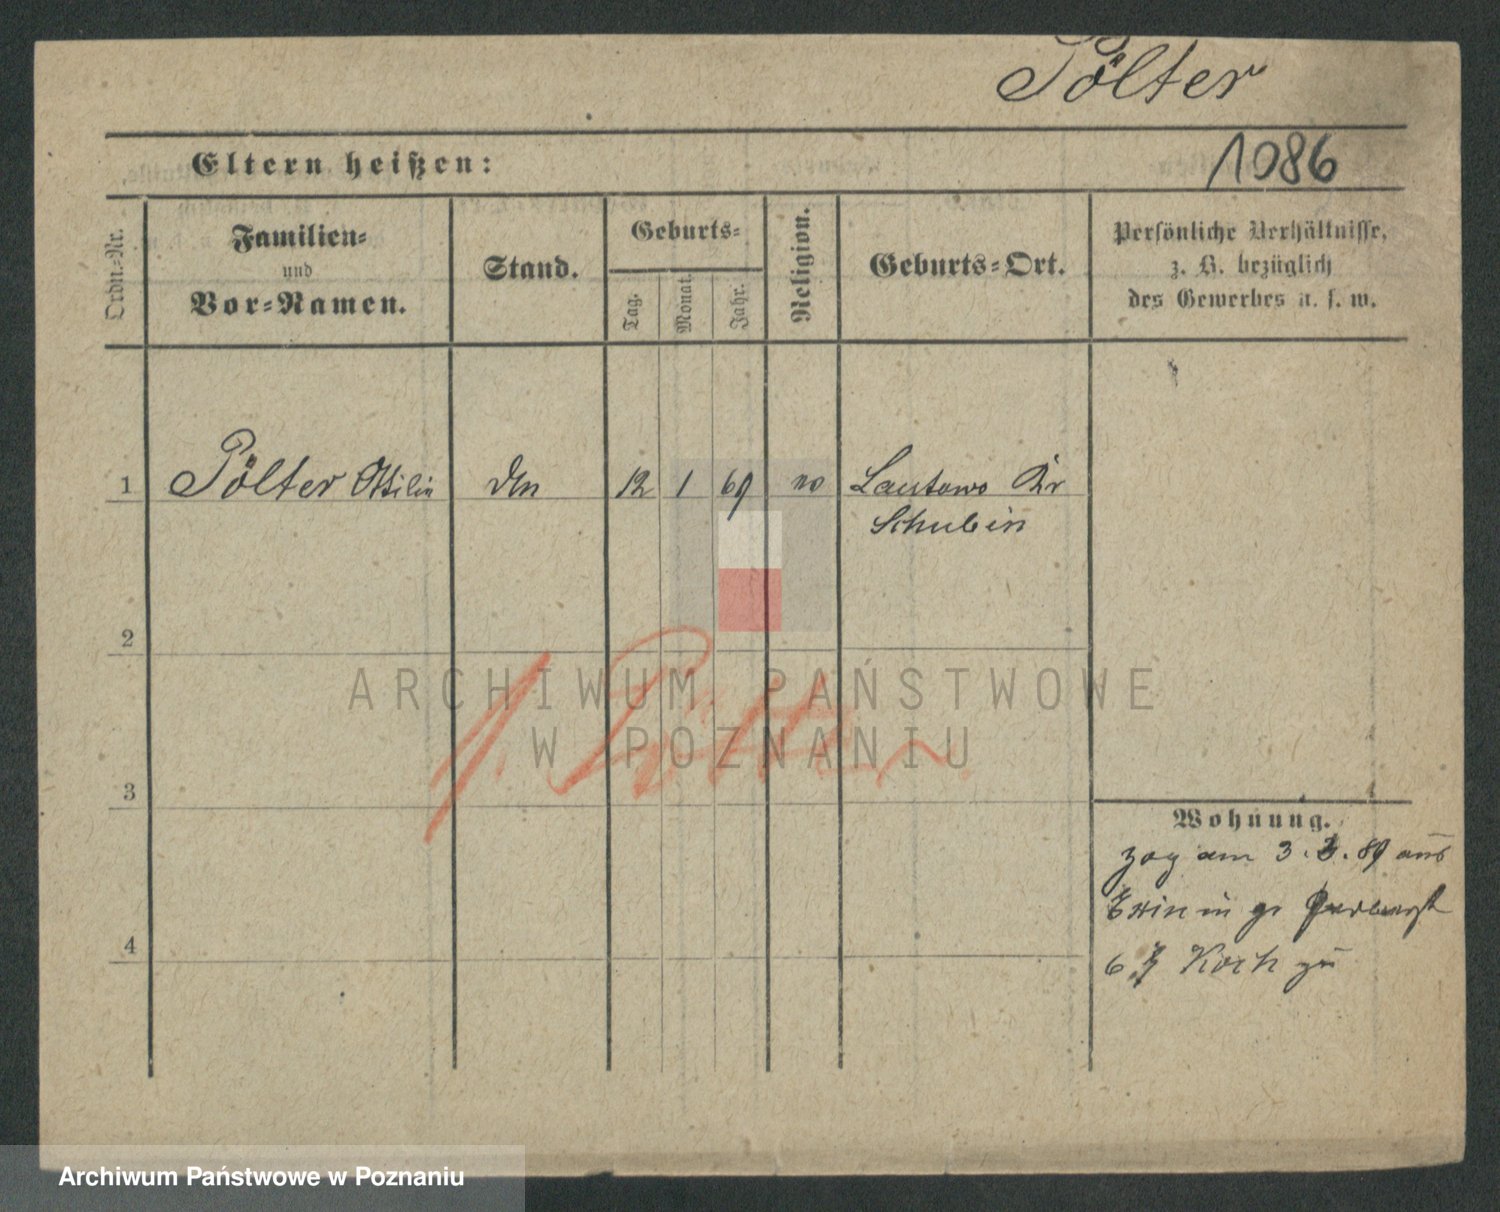 Pölter
1086
Eltern heißen:
Ordn.-Nr.
Familien-
und
Vor-Namen.
Stand.
Geburts-
Tag.
Monat.
Jahr.
Religion.
Geburts-Ort.
Persönliche Verhältnisse,
z. B. bezüglich
des Gewerbes u. s. w.
1 Pölter Ottilie 12 1 69 Kr
Schubin
2
3
4
Pölter
Wohnung.
zog am 3. 89 aus
Exin in gr
6 Koch zu
ARCHIWUM PAŃSTWOWE
W POZNANIU
Archiwum Państwowe w Poznaniu